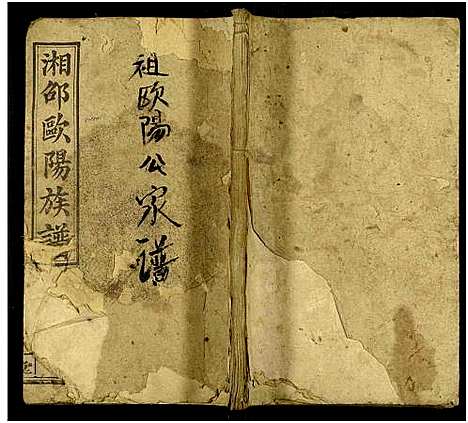 湘邵歐陽族譜
祖欧陽公家譜
堂